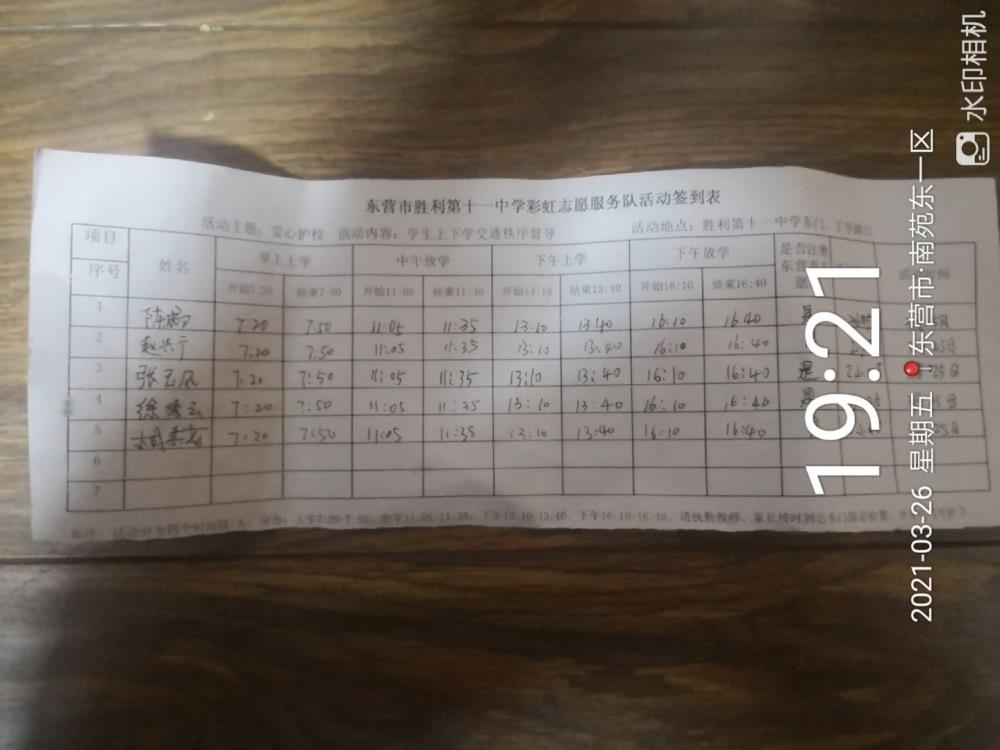 东营市胜利第十一中学彩虹志愿服务队活动签到表
活动主题：爱心护校 活动内容：学生上下学交通秩序督导 活动地点：胜利第十一中学东门、丁字路口
项目 姓名 早上上学 中午放学 下午上学 下午放学 是否注册
序号 开始7:20 结束7:50 开始11:05 结束11:35 开始13:10 结束13:40 开始16:10 结束16:40
1 7.20 7.50 11:05 11:35 13:10 13:40 16:10 16:40
2 赵兴 7:20 7:50 11:05 11:35 13:10 13:40 16:10 16:40
3 张玉凤 7:20 7:50 11:05 11:35 13:10 13:40 16:10 16:40 是
4 徐 云 7:20 7:50 11:05 11:35 13:10 13:40 16:10 16:40 是
5 7:20 7:50 11:05 11:35 13:10 13:40 16:10 16:40
6
7
备注：活动分为四个时间段/人，分为：上午7:20-7:50、中午11:05-11:35、下午13:10-13:40、下午16:10-16:40。请执勤教师、家长按时到达东门指定位置
19:21
2021-03-26 星期五 东营市·南苑东一区
水印相机